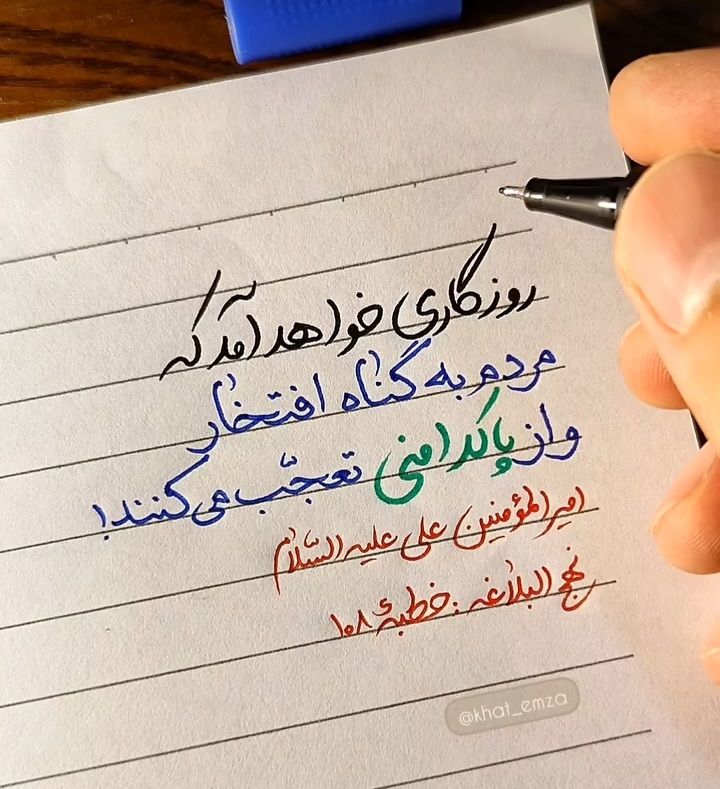 روزگاری خواهد آمد که
مردم به گناه افتخار
و از پاکدامنی تعجّب می‌کنند!
امیرالمؤمنین علی علیه السّلام
نهج البلاغه : خطبهٔ ۱۰۸
@khat_emza